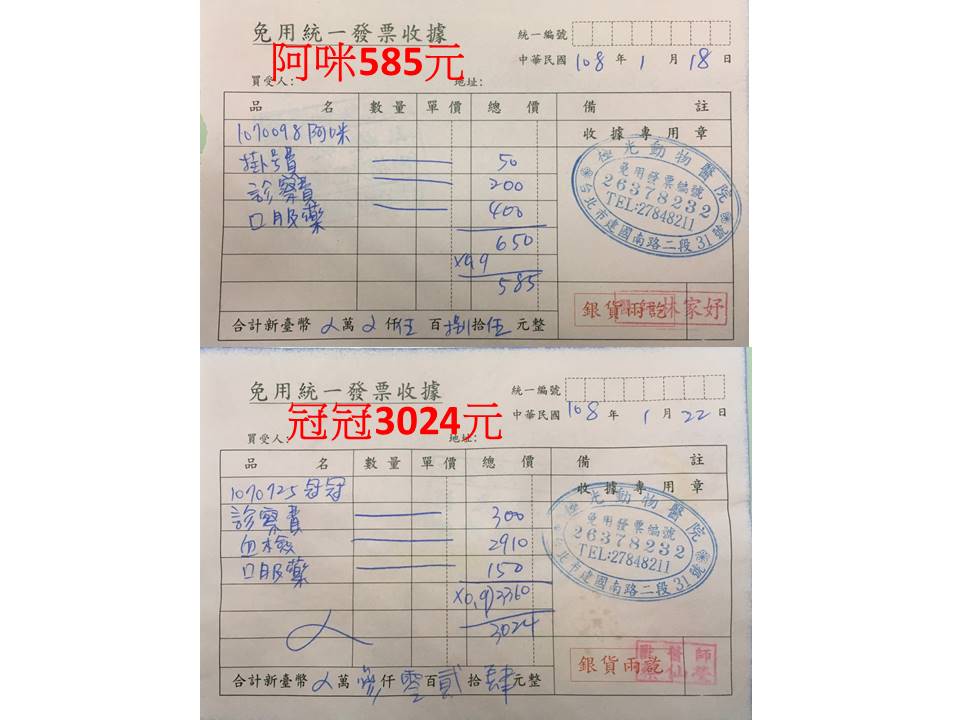 免用統一發票收據
統一編號
阿咪585元
中華民國 108 年 1 月 18 日
買受人: 地址:
品 名 數 量 單 價 總 價 備 註
1070098 阿咪 收據專用章
掛号費 50
診察費 200
口服藥 400
650
×0.9
585
極光動物醫院
免用發票編號
26378232
TEL:27848211
台北市建國南路二段31號
銀貨兩訖 林家妤
合計新臺幣 萬 仟 伍 百 捌 拾 伍 元整
免用統一發票收據
統一編號
冠冠3024元
中華民國 108 年 1 月 22 日
買受人: 地址:
品 名 數 量 單 價 總 價 備 註
1070725 冠冠 收據專用章
診察費 300
血檢 2910
口服藥 150
×0.9) 3360
3024
極光動物醫院
免用發票編號
26378232
TEL:27848211
台北市建國南路二段31號
銀貨兩訖
合計新臺幣 萬 參 仟 零 百 貳 拾 肆 元整